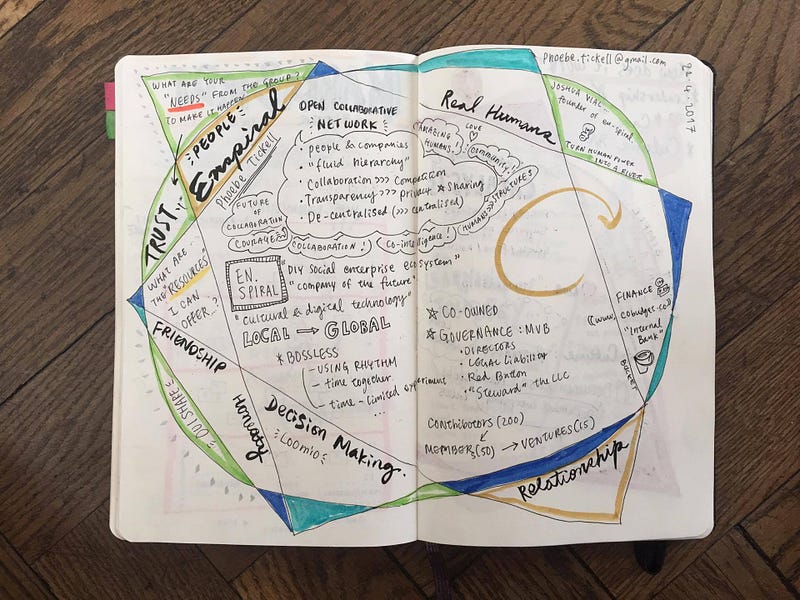 WHAT ARE YOUR
"NEEDS" FROM THE GROUP?
TO MAKE IT HAPPEN
PEOPLE
Enspiral
Phoebe Tickell
TRUST...
WHAT ARE
THE "RESOURCES"
I CAN
OFFER...?
FRIENDSHIP
OUISHARE
Honesty
OPEN COLLABORATIVE
NETWORK
• people & companies
• "fluid hierarchy"
• Collaboration >>> Competition
• Transparency >>> privacy ☆ Sharing
• De-centralised (>>> centralised)
FUTURE
OF
COLLABORATION
COURAGE
COLLABORATION!
Co-intelligence!
HUMANS>>>STRUCTURES
AMAZING
HUMANS!
LOVE
Community!
EN.
SPIRAL
"DIY Social enterprise ecosystem"
"company of the future"
"cultural & digital technology"
LOCAL → GLOBAL
* BOSSLESS
— USING RHYTHM
— time together
— time-limited experiment
...
Decision Making.
Loomio
phoebe.tickell@gmail.com
22.4.2017
Real Humans
JOSHUA VIAL-
founder of en-spiral.
TURN HUMAN POWER
INTO A RIVER
☆ CO-OWNED
☆ GOVERNANCE: MVB
• DIRECTORS
• LEGAL liability
• Red Button
• "Steward" the LLC
Contributors (200)
MEMBERS (50) → VENTURES (15)
FINANCE
(www.cobudget.co)
"Internal
Bank"
BUCKETS
Relationship